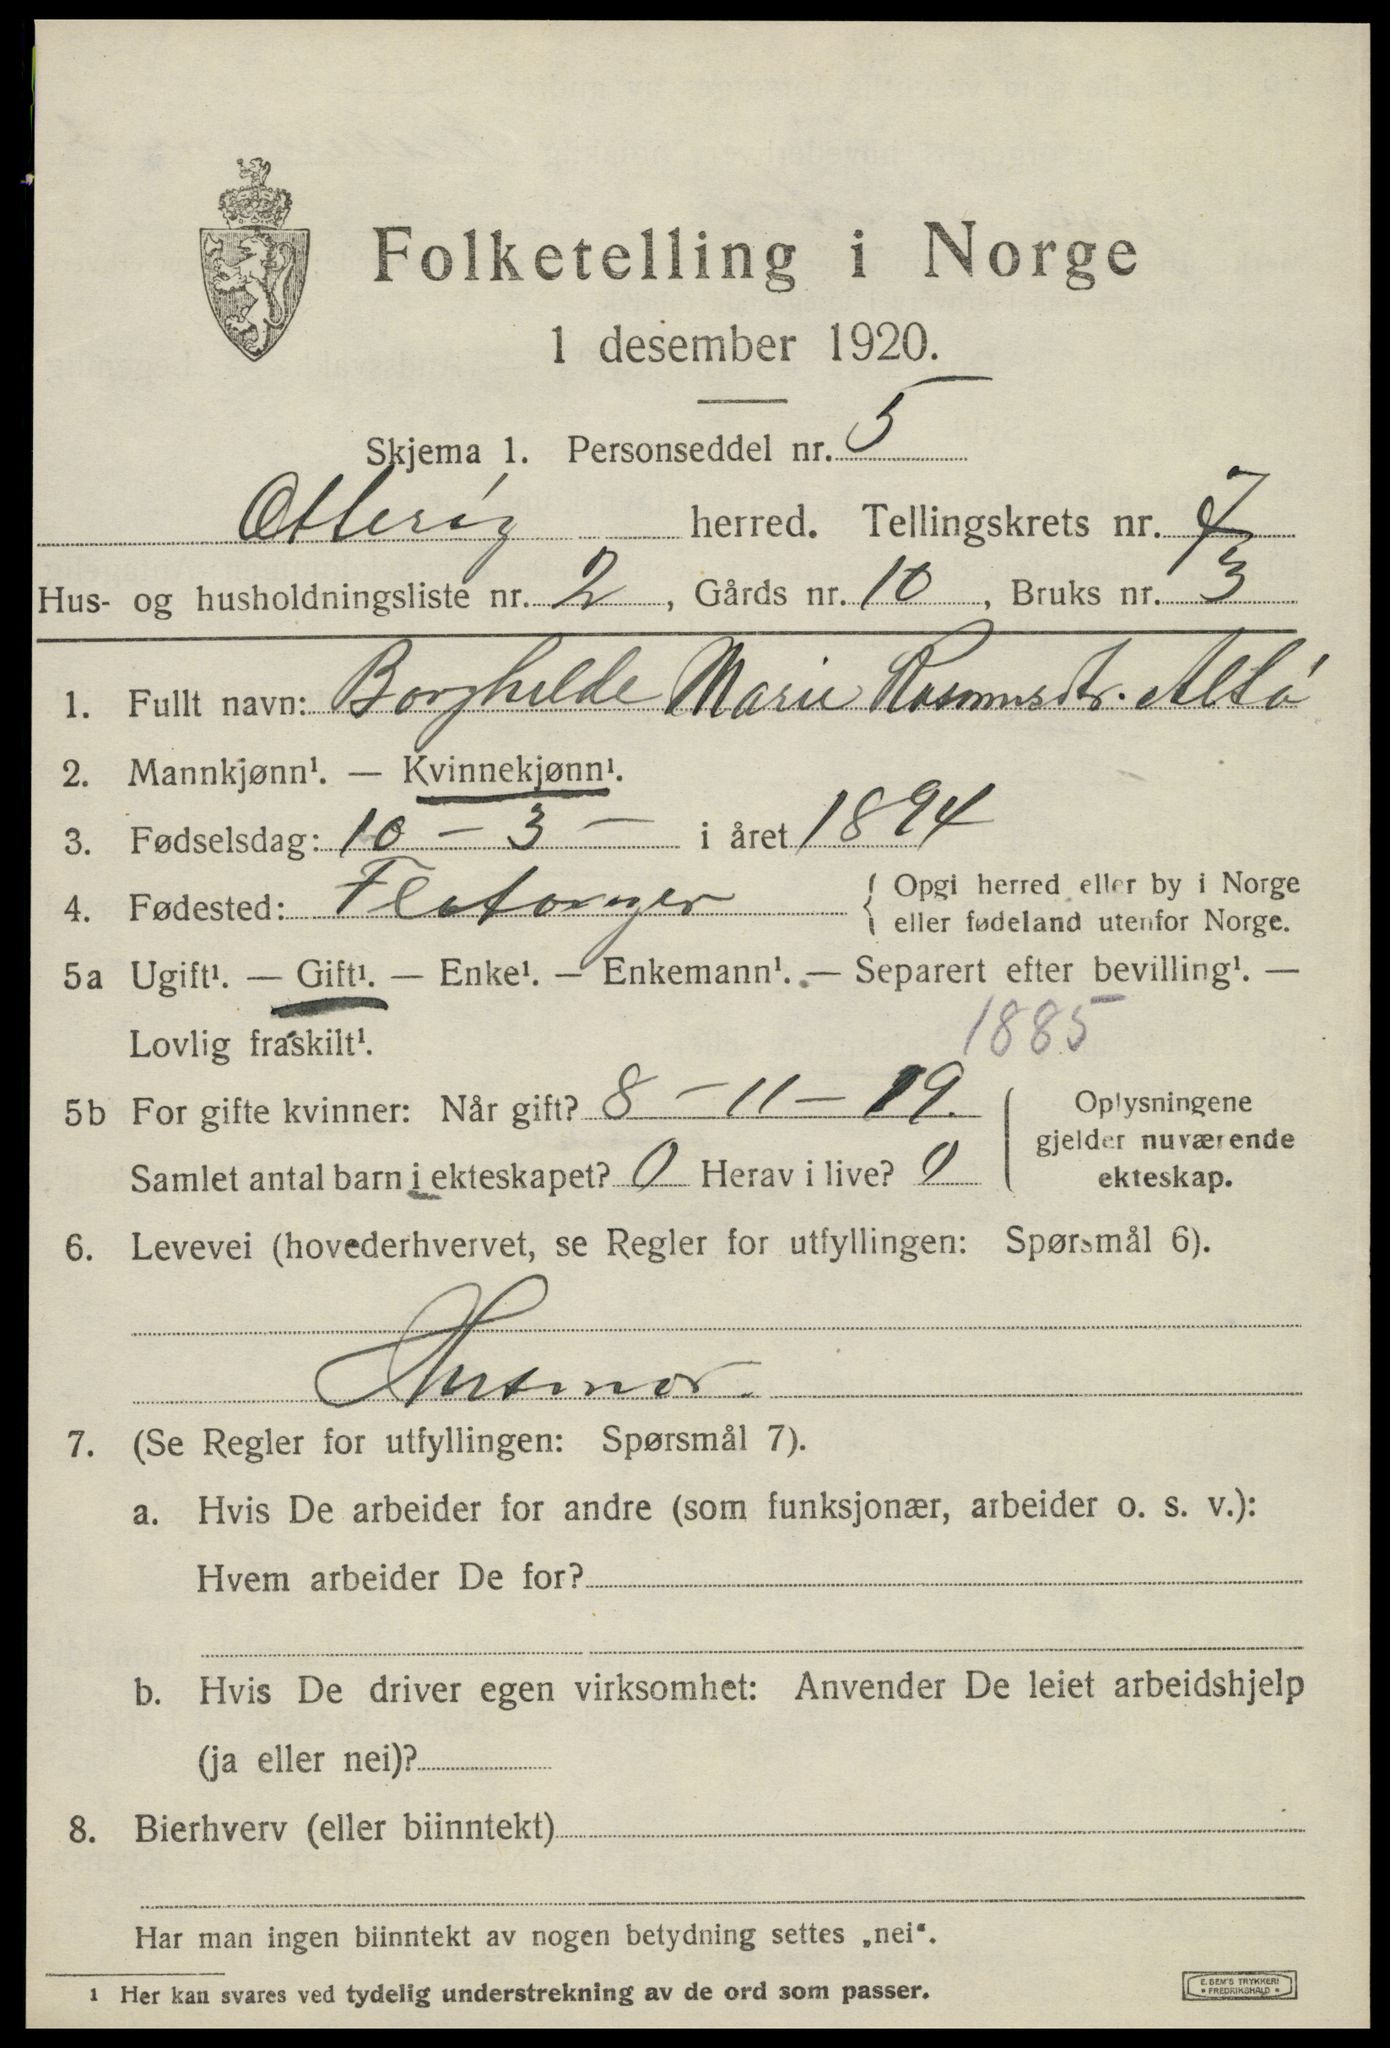 Folketelling i Norge
1 desember 1920.
Skjema 1. Personseddel nr. 5
Otterøy herred. Tellingskrets nr. 7
Hus- og husholdningsliste nr. 2, Gårds nr. 10, Bruks nr. 3
1. Fullt navn: Borghilde Marie Rasmusdr. Altø
2. Mannkjønn¹. — Kvinnekjønn¹.
3. Fødselsdag: 10 — 3 — i året 1894
4. Fødested: Flatanger { Opgi herred eller by i Norge
eller fødeland utenfor Norge.
5a Ugift¹. — Gift¹. — Enke¹. — Enkemann¹. — Separert efter bevilling¹. —
Lovlig fraskilt¹. 1885
5b For gifte kvinner: Når gift? 8 — 11 — 19. Oplysningene
gjelder nuværende
Samlet antal barn i ekteskapet? 0 Herav i live? 0 ekteskap.
6. Levevei (hovederhvervet, se Regler for utfyllingen: Spørsmål 6).
Husmor.
7. (Se Regler for utfyllingen: Spørsmål 7).
a. Hvis De arbeider for andre (som funksjonær, arbeider o. s. v.):
Hvem arbeider De for?
b. Hvis De driver egen virksomhet: Anvender De leiet arbeidshjelp
(ja eller nei)?
8. Bierhverv (eller biinntekt)
Har man ingen biinntekt av nogen betydning settes „nei“.
1 Her kan svares ved tydelig understrekning av de ord som passer.
E. SEM'S TRYKKERI
• FREDRIKSHALD •